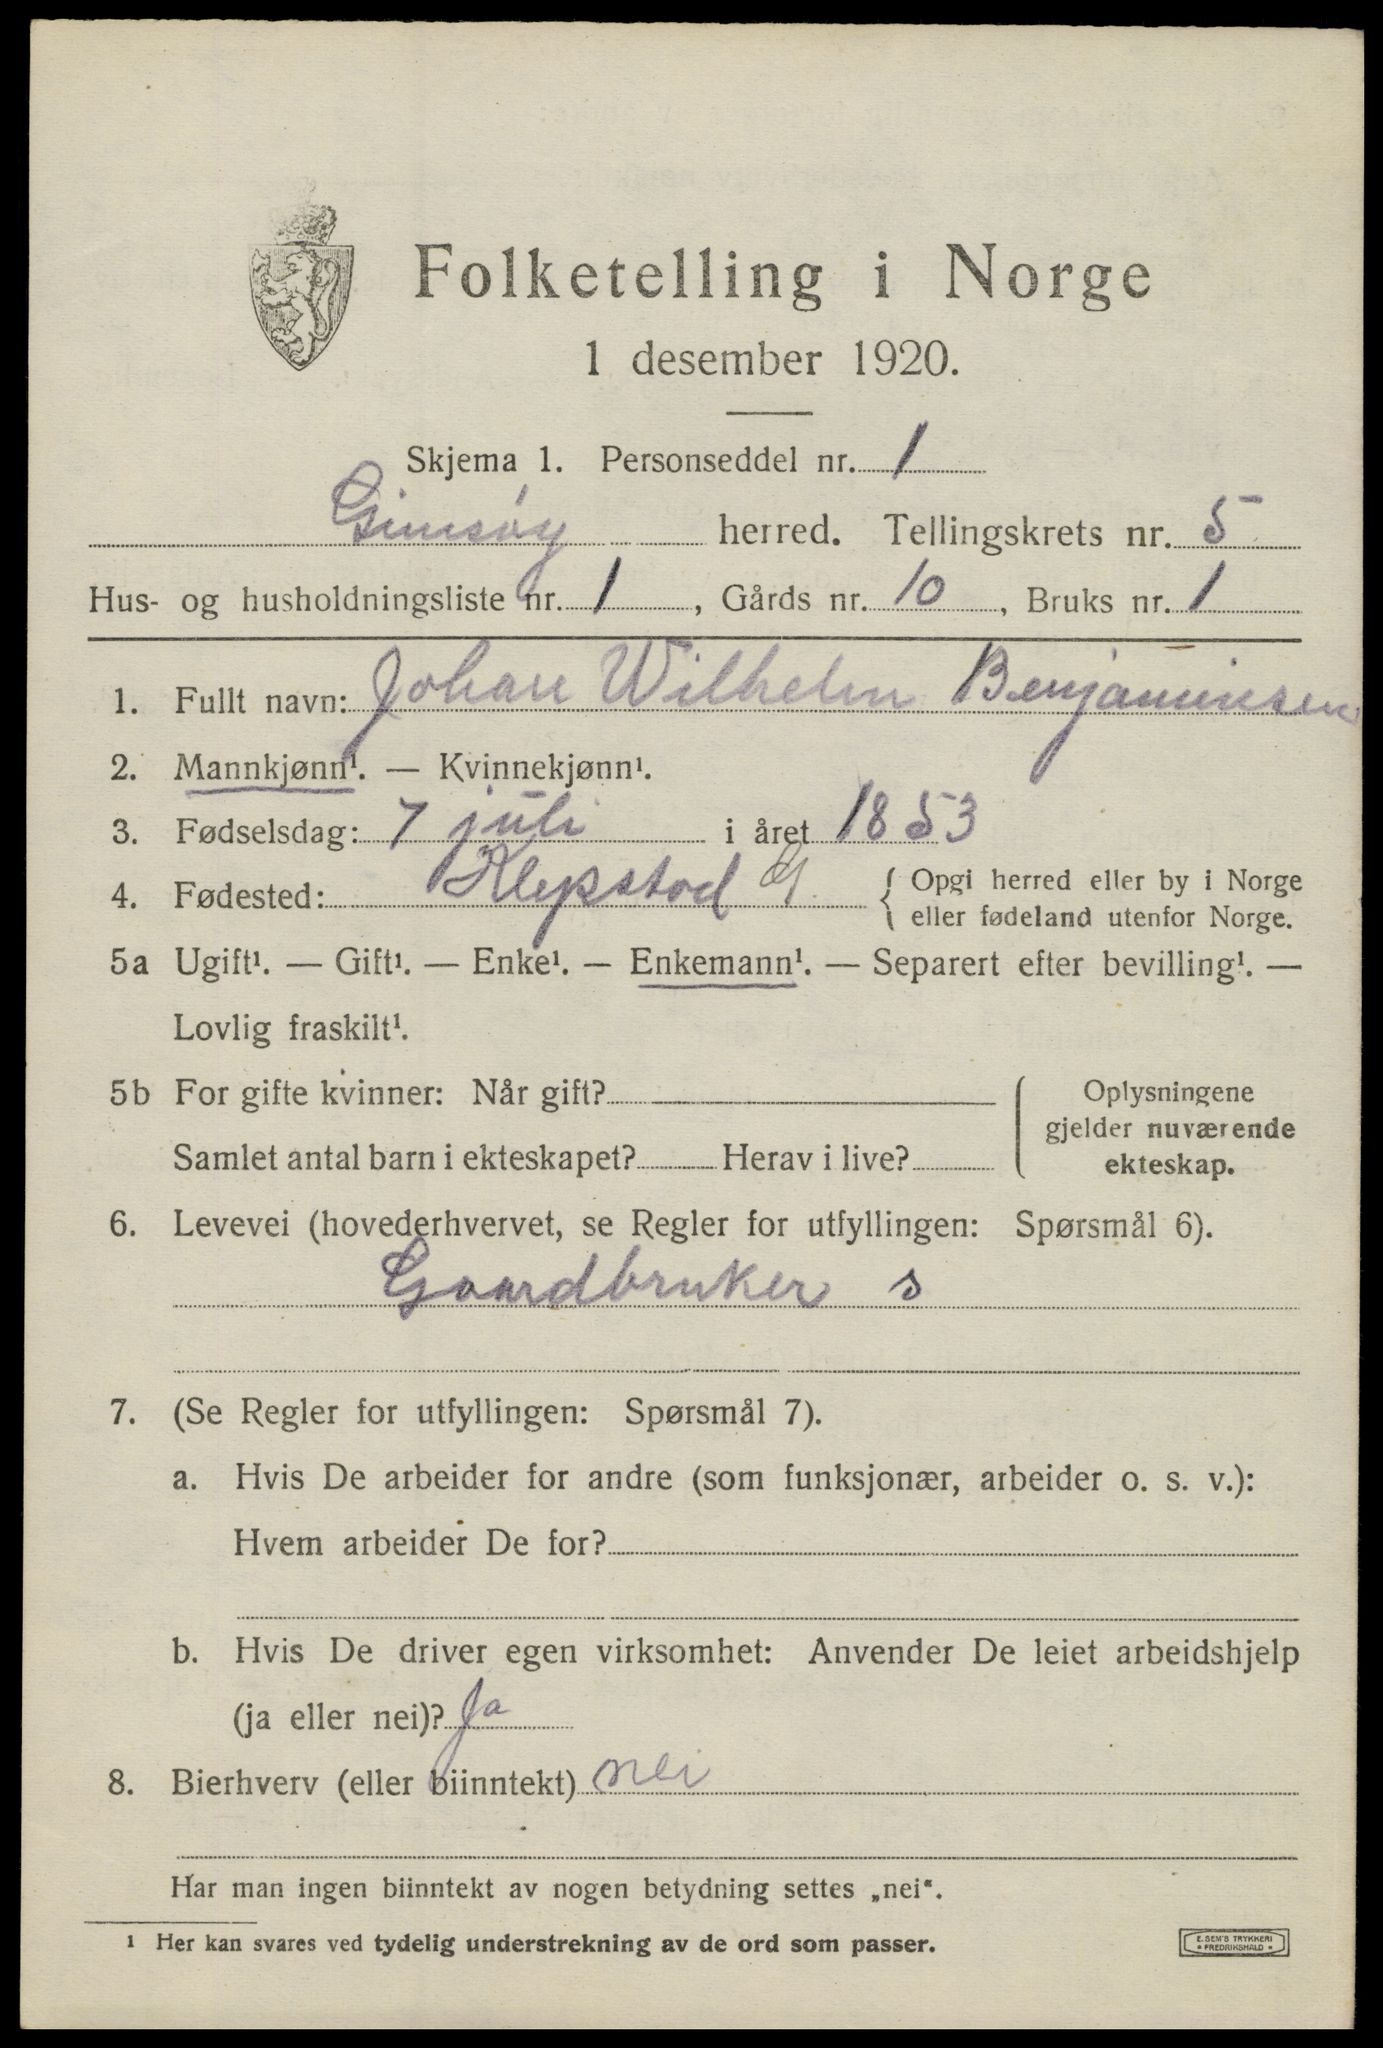 Folketelling i Norge
1 desember 1920.
Skjema 1. Personseddel nr. 1
Gimsøy herred. Tellingskrets nr. 5
Hus- og husholdningsliste nr. 1, Gårds nr. 10, Bruks nr. 1
1. Fullt navn: Johan Wilhelm Benjaminsen
2. Mannkjønn¹. — Kvinnekjønn¹.
3. Fødselsdag: 7 juli i året 1853
4. Fødested: Klepstad G. { Opgi herred eller by i Norge
eller fødeland utenfor Norge.
5a Ugift¹. — Gift¹. — Enke¹. — Enkemann¹. — Separert efter bevilling¹. —
Lovlig fraskilt¹.
5b For gifte kvinner: Når gift?
Samlet antal barn i ekteskapet? Herav i live?
Oplysningene
gjelder nuværende
ekteskap.
6. Levevei (hovederhvervet, se Regler for utfyllingen: Spørsmål 6).
Gaardbruker s
7. (Se Regler for utfyllingen: Spørsmål 7).
a. Hvis De arbeider for andre (som funksjonær, arbeider o. s. v.):
Hvem arbeider De for?
b. Hvis De driver egen virksomhet: Anvender De leiet arbeidshjelp
(ja eller nei)? Ja
8. Bierhverv (eller biinntekt) nei
Har man ingen biinntekt av nogen betydning settes „nei".
¹ Her kan svares ved tydelig understrekning av de ord som passer.
E. SEM'S TRYKKERI
* FREDRIKSHALD *